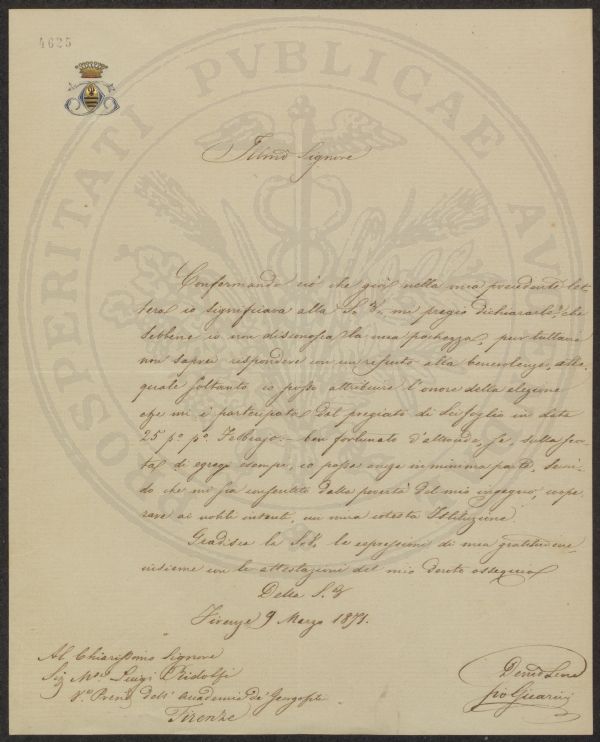 4625
PROSPERITATI PVBLICAE AV
Illmo Signore
Confermando ciò che già nella mia precedente let-
tera io significava alla S. V. mi pregio dichiararle, che
sebbene io non disconosca la mia pochezza, pur tuttavia
non saprei rispondere con un rifiuto alla benevolenza, alla
quale soltanto io posso attribuire l'onore della elezione
che mi è partecipata dal pregiato di Lei foglio in data
25 p.o p.o Febbrajo. - ben fortunato d'altronde, se, sulla scor-
ta di egregi esempi, io possa anche in minima parte,
do che mi sia consentito dalla povertà del mio ingegno, coope-
rare ai nobili intenti, cui mira cotesta Istituzione.
Gradisca la S. V. le espressioni di mia gratitudine
insieme con le attestazioni del mio devoto ossequio
Della S. V.
Firenze 9 Marzo 1871.
Al Chiarissimo Signore
Sig Mse Luigi Ridolfi
V.o Presid. dell' Accademia de' Georgofili
Firenze